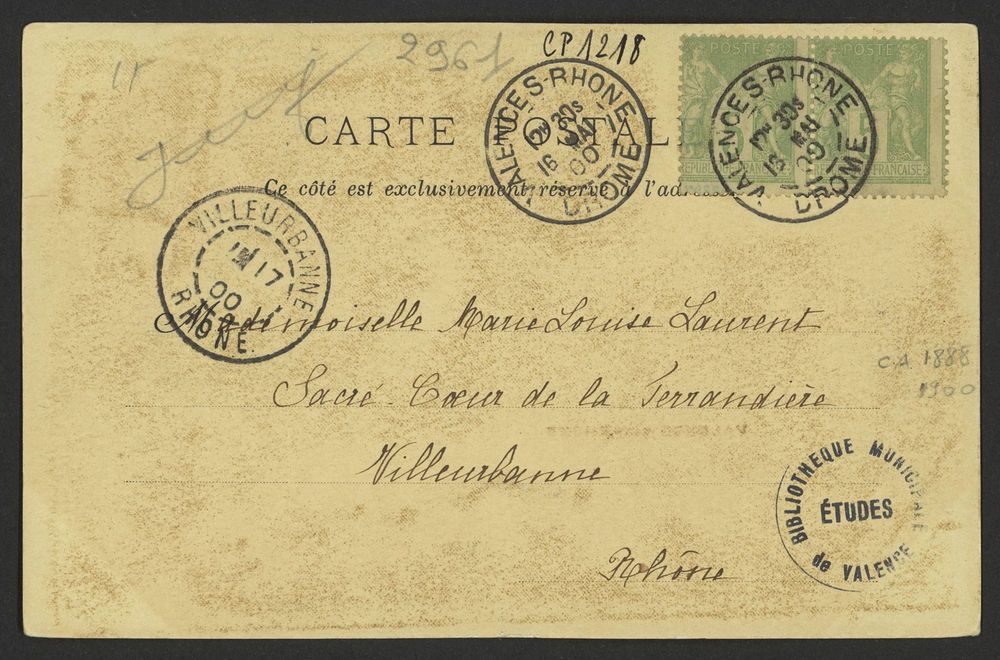 2961
CP1218
CARTE POSTALE
Ce côté est exclusivement réservé à l'adresse
VALENCE-S-RHONE
12H 30S
16 MAI
00
DROME
POSTE
POSTE
VALENCE-S-RHONE
12H 30S
16 MAI
00
DROME
REPUBLIQUE
FRANÇAISE
VILLEURBANNE
17
00
RHONE
Mademoiselle Marie Louise Laurent
Sacré-Cœur de la Ferrandière
Villeurbanne
Rhône
CA 1888
1900
BIBLIOTHEQUE MUNICIPALE
ÉTUDES
de VALENCE